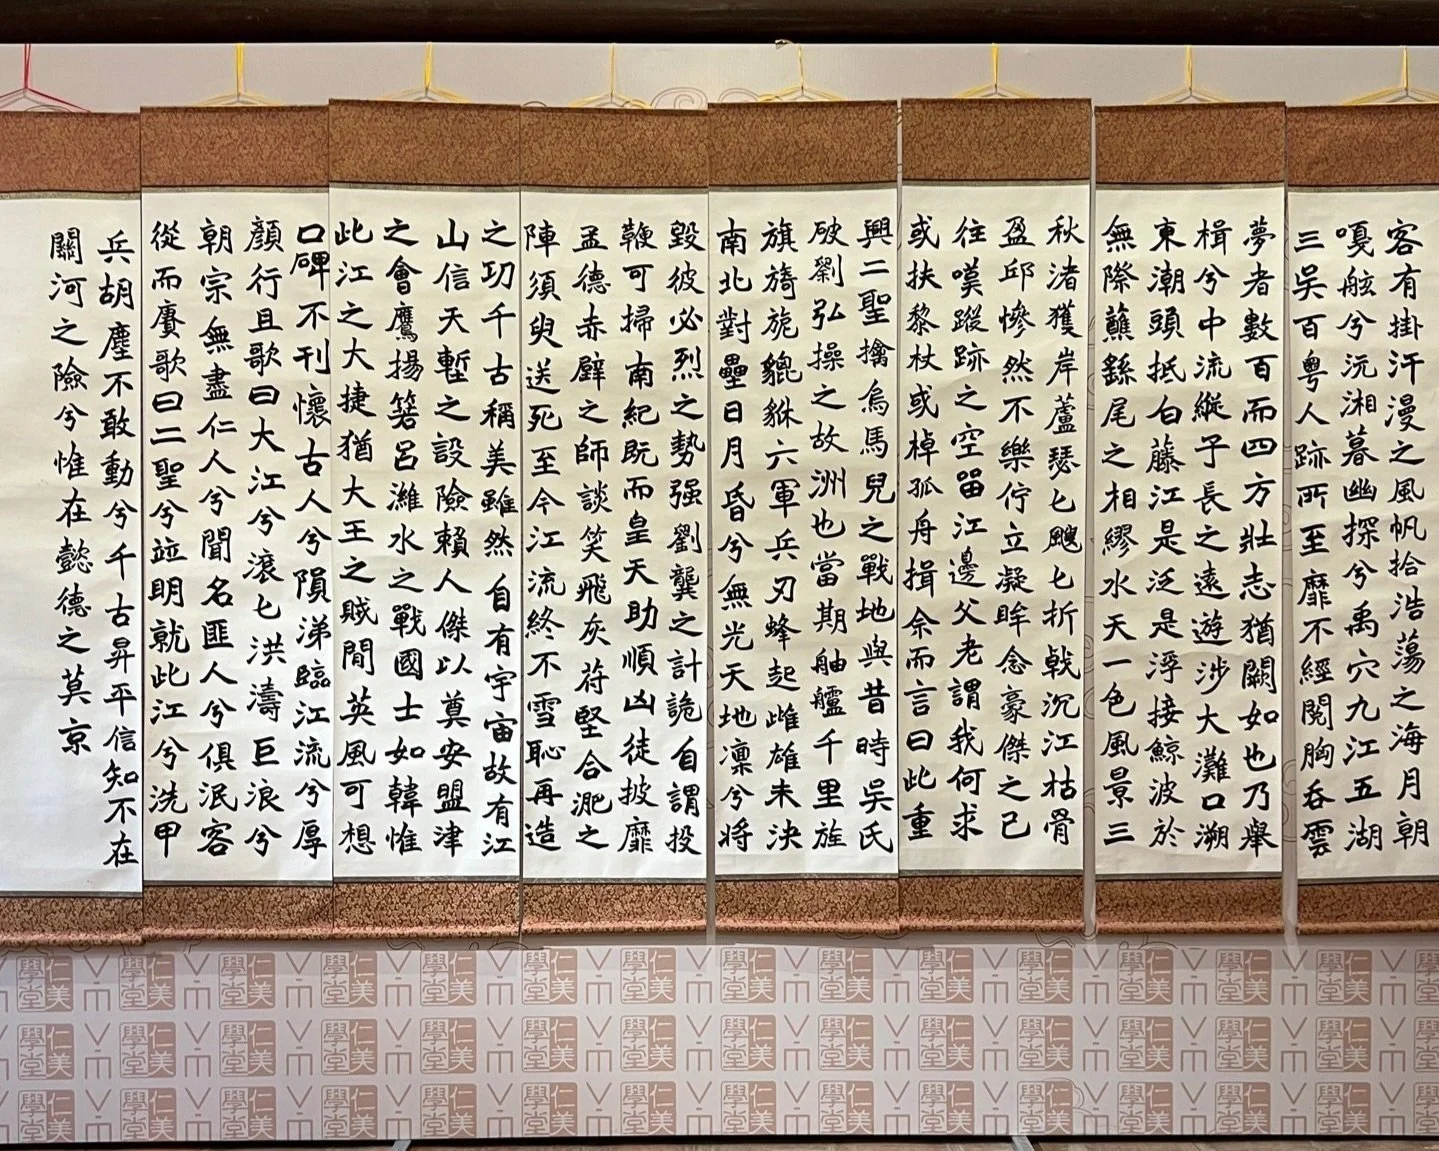 客有掛汗漫之風帆拾浩蕩之海月朝
嘎舷兮沅湘暮幽探兮禹穴九江五湖
三吳百粵人跡所至靡不經閱胸吞雲
夢者數百而四方壯志猶闕如也乃舉
楫兮中流縱子長之遠遊涉大灘口溯
東潮頭抵白藤江是泛是浮接鯨波於
無際蘸尾之相繆水天一色風景三
秋渚獲岸蘆瑟匕颼匕折戟沉江枯骨
盈邱慘然不樂佇立凝眸念豪傑之已
往嘆蹤跡之空畱江邊父老謂我何求
或扶黎杖或棹孤舟揖余而言曰此重
興二聖擒烏馬兒之戰地與昔時吳氏
破劉弘操之故洲也當期舳艫千里旌
旗旖旎貔貅六軍兵刃蜂起雌雄未決
南北對壘日月昏兮無光天地凜兮將
毀彼必烈之勢强劉龑之計詭自謂投
鞭可掃南紀既而皇天助順凶徒披靡
孟德赤壁之師談笑飛灰苻堅合淝之
陣須臾送死至今江流終不雪恥再造
之功千古稱美雖然自有宇宙故有江
山信天塹之設險賴人傑以奠安盟津
之會鷹揚箬呂濰水之戰國士如韓惟
此江之大捷猶大王之賊閒英風可想
口碑不刊懷古人兮隕涕臨江流兮厚
顏行且歌曰大江兮滾匕洪濤巨浪兮
朝宗無盡仁人兮聞名匪人兮俱泯客
從而賡歌曰二聖兮竝明就此江兮洗甲
兵胡塵不敢動兮千古昇平信知不在
關河之險兮惟在懿德之莫京
仁美學堂